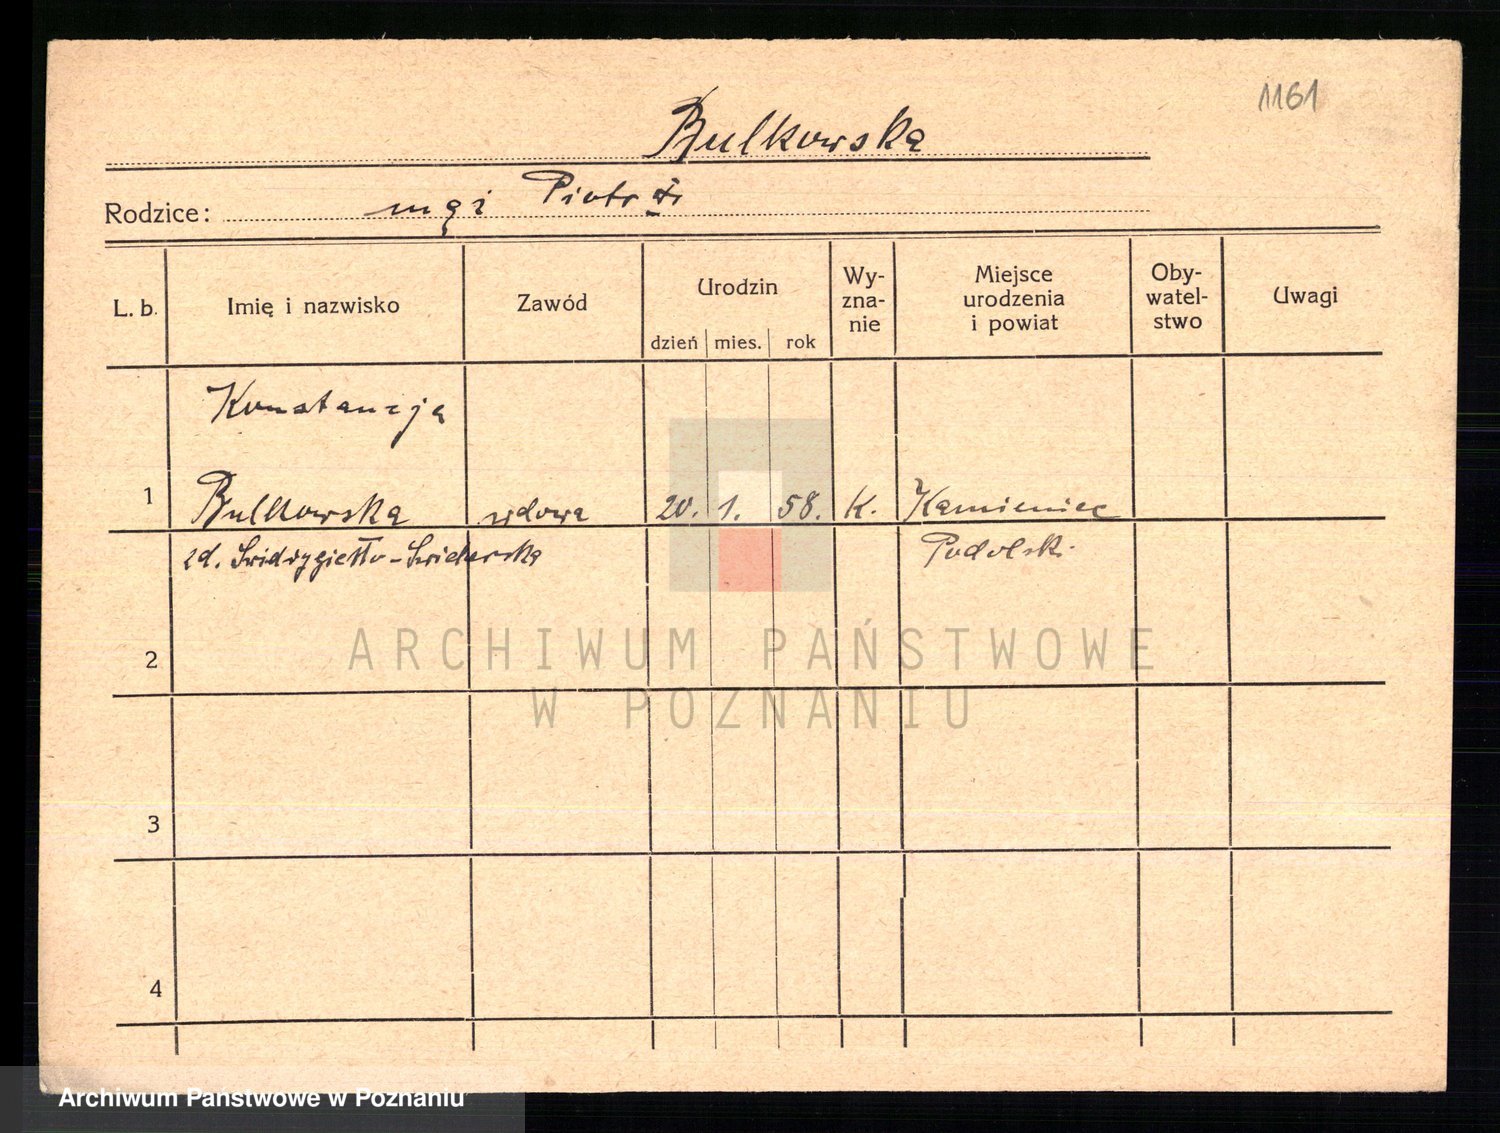 1161
Bulkowska
Rodzice: mąż Piotr
L. b. Imię i nazwisko Zawód Urodzin dzień mies. rok Wy-zna-nie Miejsce urodzenia i powiat Oby-watel-stwo Uwagi
Konstancja
1 Bulkowska wdowa 20. 1. 58. K. Kamieniec
zd. Podolski
2
ARCHIWUM PAŃSTWOWE
W POZNANIU
3
4
Archiwum Państwowe w Poznaniu